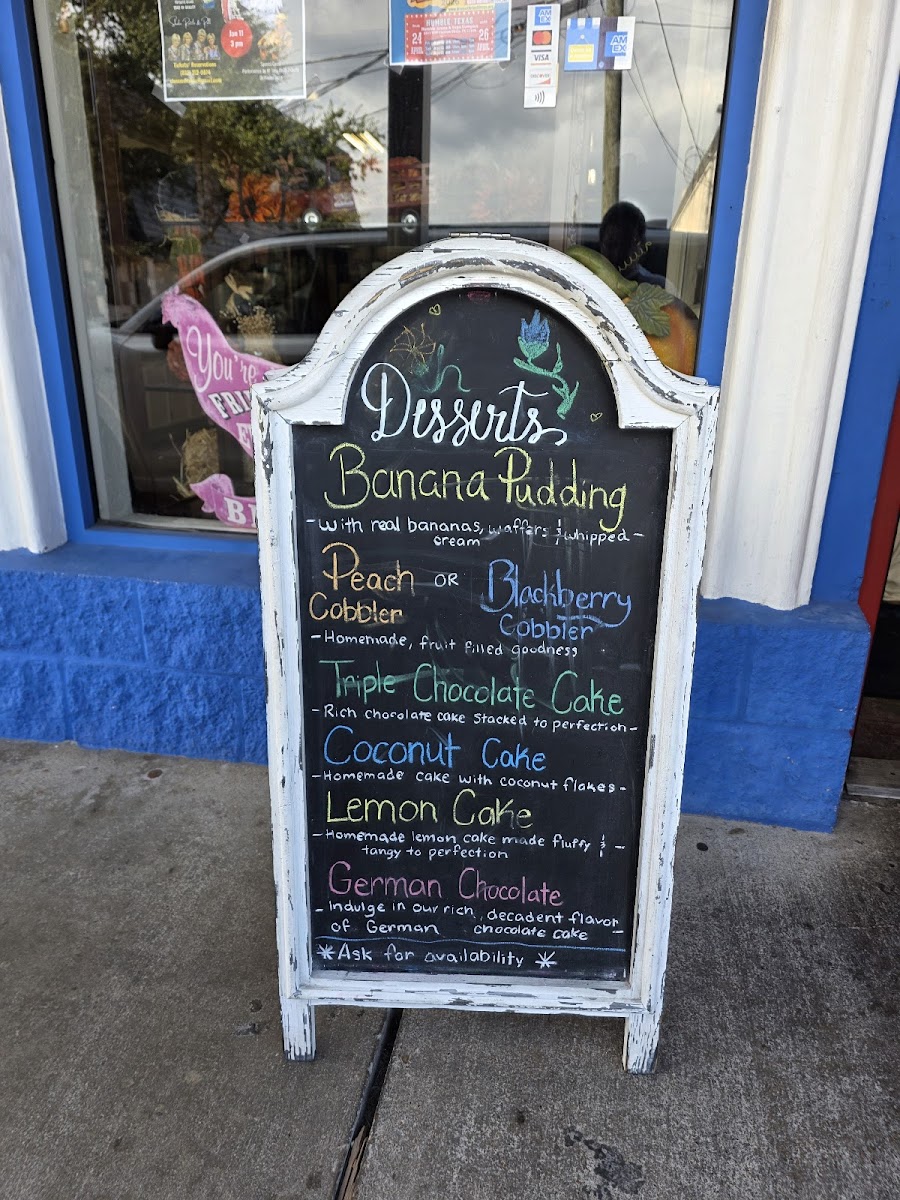 Jan 11
3 pm
HUMBLE TEXAS
24
26
AM
EX
VISA
DISCOVER
AM
EX
You're
FRI
E
B
Desserts
Banana Pudding
- with real bananas, waffers & whipped -
cream
Peach or Blackberry
Cobbler Cobbler
- Homemade, fruit filled goodness
Triple Chocolate Cake
- Rich chocolate cake stacked to perfection -
Coconut Cake
- Homemade cake with coconut flakes -
Lemon Cake
- Homemade lemon cake made fluffy & -
tangy to perfection
German Chocolate
- Indulge in our rich, decadent flavor
of German chocolate cake -
* Ask for availability *